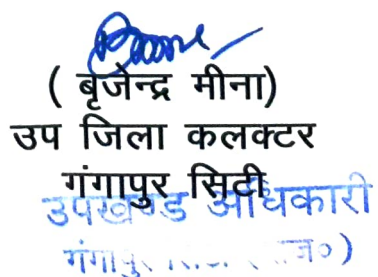 ( बृजेन्द्र मीना)
उप जिला कलक्टर
गंगापुर सिटी
उपखण्ड अधिकारी